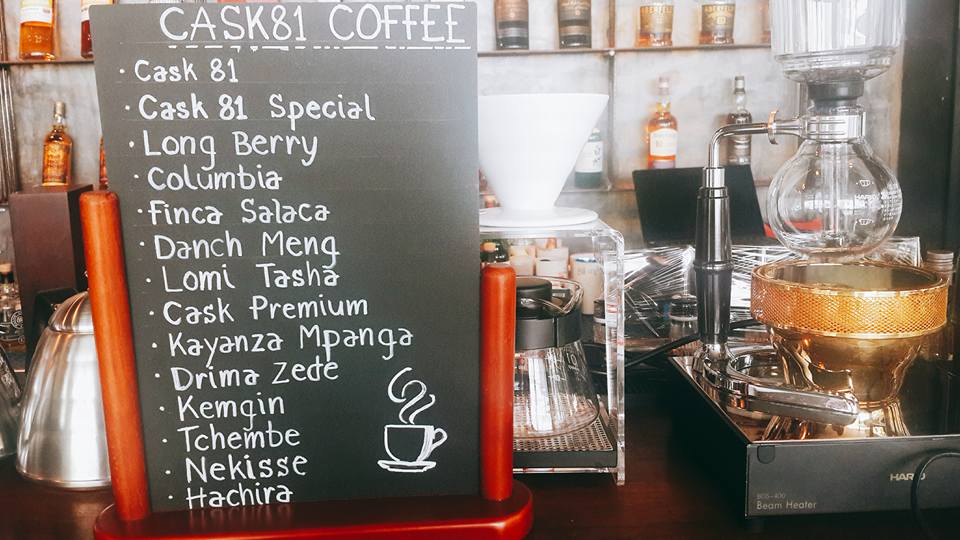 CASK81 COFFEE
· Cask 81
· Cask 81 Special
· Long Berry
· Columbia
· Finca Salaca
· Danch Meng
· Lomi Tasha
· Cask Premium
· Kayanza Mpanga
· Drima Zede
· Kemgin
· Tchembe
· Nekisse
· Hachira
ABERFEL
BGS-400
Beam Heater